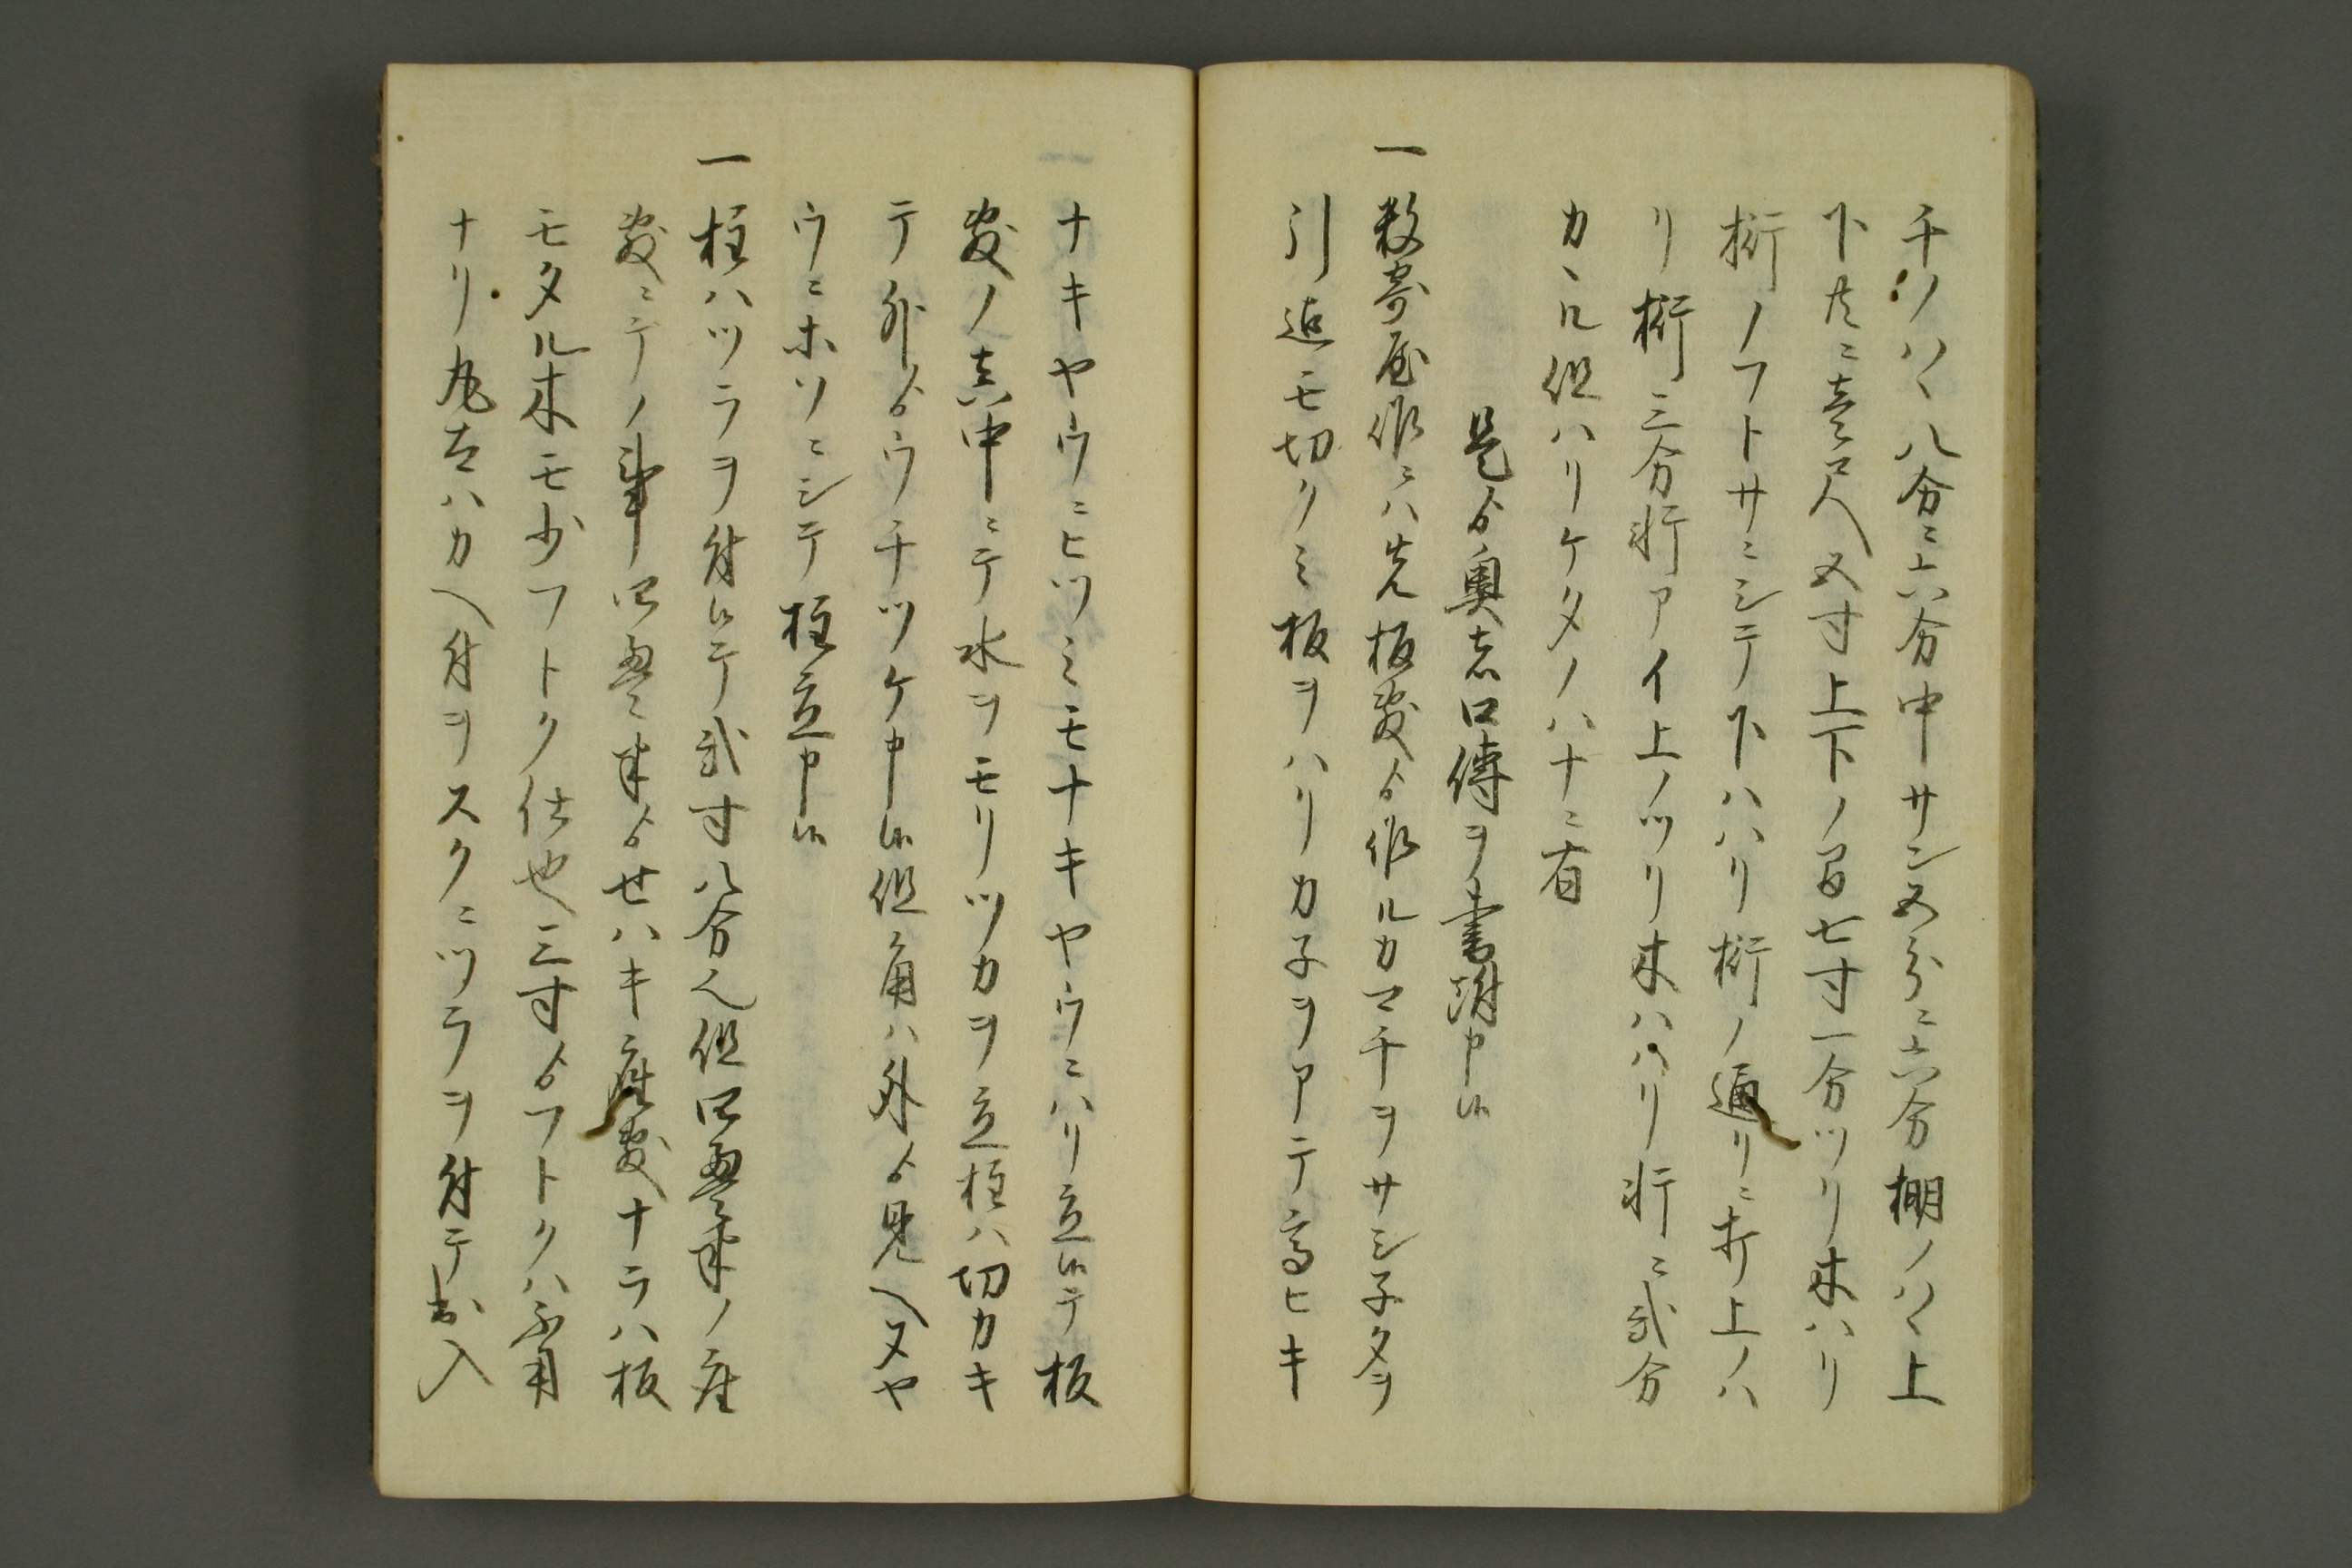 チノハヽ八分ニ六分中サン五分ニ六分棚ノハヽ上
下共ニ壱尺五寸上下ノ間七寸一分ツリ木ハリ
桁ノフトサニシテ下ハハリ桁ノ通リニ打上ノハ
リ桁三分斗アイ上ノツリ木ハハリ斗ニ弐分
カヽル但ハリケタノハナニ有
是ゟ奥ニ口傳ヲ書附申候
一数寄屋作ニハ先板畳ゟ作ルカマチヲサシ子タヲ
引迠モ切クミ板ヲハリカ子ヲアテ高ヒキ
ナキヤウニヒツミモナキヤウニハリ立候テ板
畳ノ真中ニテ水ヲモリツカヲ立柱ハ切カキ
テ外ゟウチツケ申候但角ハ外ゟ見ヘヌヤ
ウニホソニシテ柱立申候
一柱ハツラヲ付候テ弐寸八分也但四畳半ノ座
敷ニテノ事四畳半ゟせハキ座敷ナラハ板
モタル木モ少フトク仕也三寸ゟフトクハ不用
ナリ丸太ハカヘ付ヲスクニツラヲ付テ出入